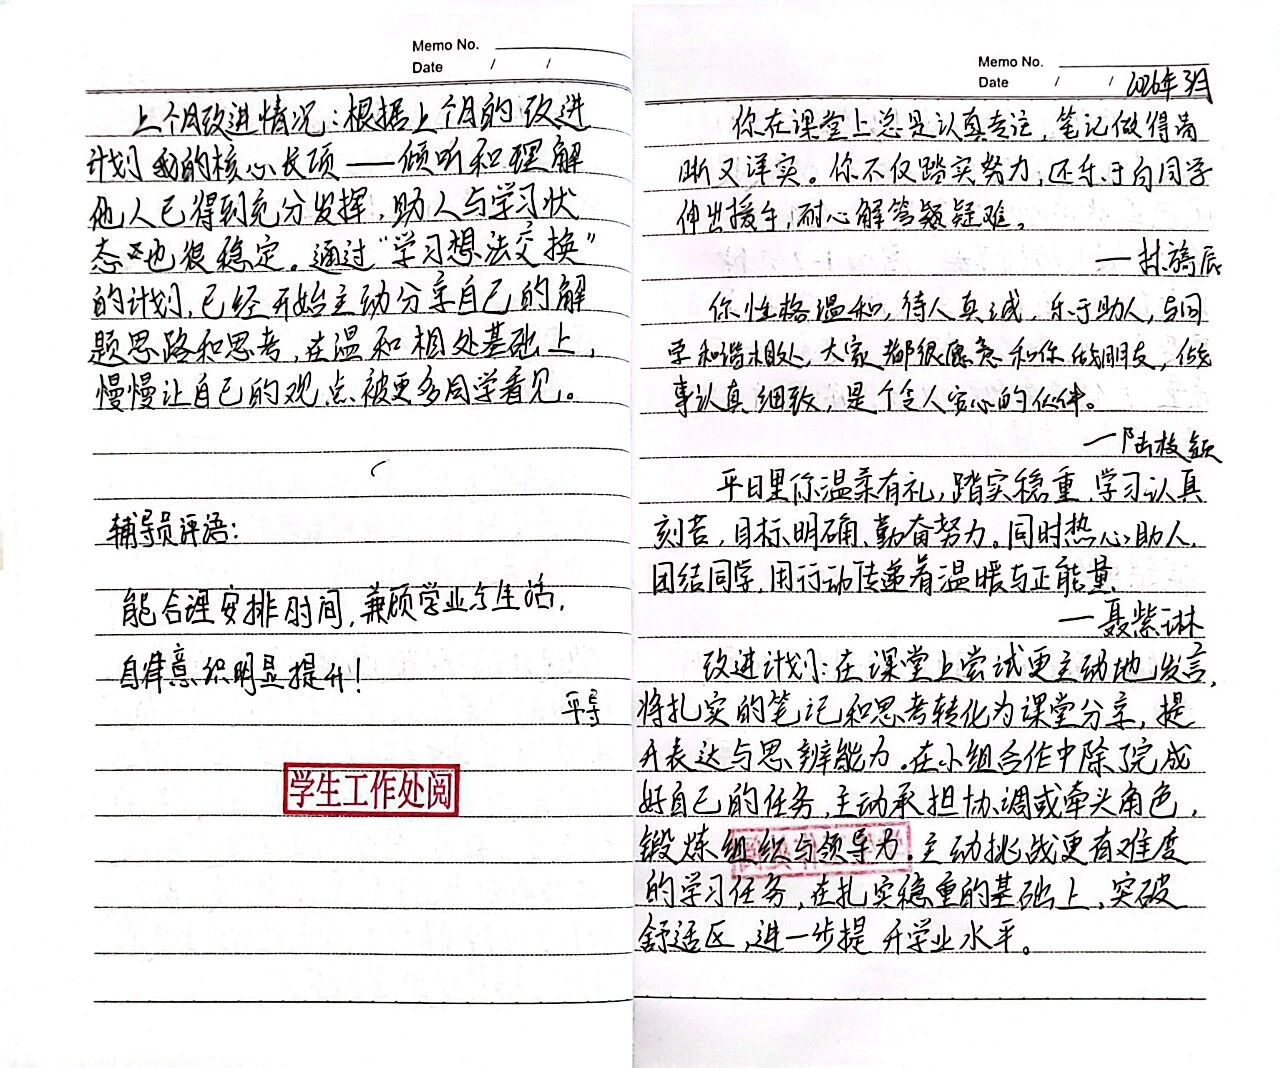 Memo No.
Date / /
上个月改进情况：根据上个月的改进
计划 我的核心长项——倾听和理解
他人已得到充分发挥，助人与学习状
态也很稳定。通过“学习想法交换”
的计划，已经开始主动分享自己的解
题思路和思考，在温和相处基础上，
慢慢让自己的观点被更多同学看见。
辅导员评语：
能合理安排时间，兼顾学业与生活，
自律意识明显提升！
平导
学生工作处阅
Memo No.
Date / / 2026年3月
你在课堂上总是认真专注，笔记做得清
晰又详实。你不仅踏实努力，还乐于向同学
伸出援手，耐心解答疑难。
——林
你性格温和，待人真诚，乐于助人，与同
学和谐相处，大家都很愿意和你做朋友，做
事认真细致，是个令人安心的伙伴。
——陆
平日里你温柔有礼，踏实稳重，学习认真
刻苦，目标明确，勤奋努力。同时热心助人，
团结同学，用行动传递着温暖与正能量。
——聂紫琳
改进计划：在课堂上尝试更主动地发言，
将扎实的笔记和思考转化为课堂分享，提
升表达与思辨能力。在小组合作中除了完成
好自己的任务，主动承担协调或牵头角色，
锻炼组织与领导力。主动挑战更有难度
的学习任务，在扎实稳重的基础上，突破
舒适区，进一步提升学业水平。